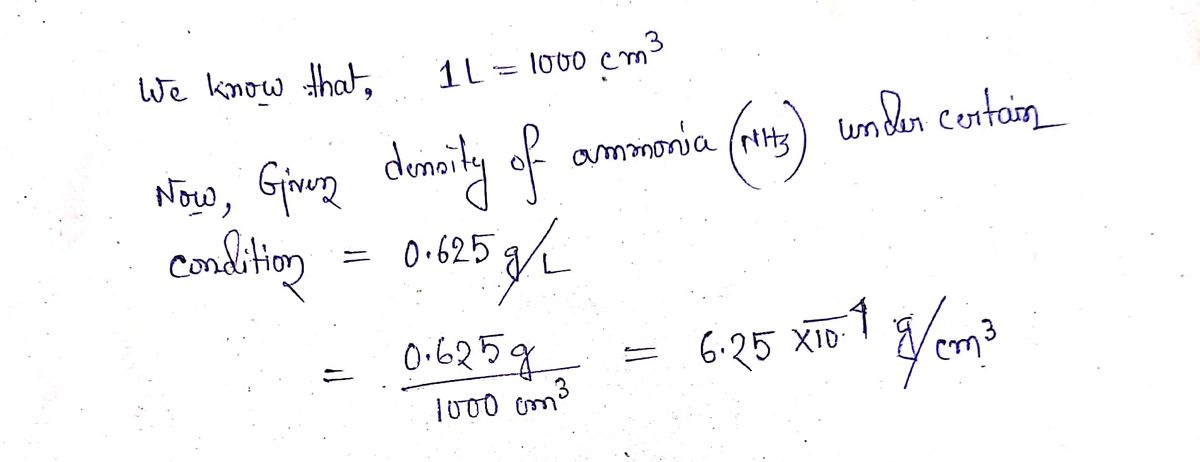 We know that, 1L = 1000 cm³
Now, Given density of ammonia (NH3) under certain
condition = 0.625 g/L
= 0.625g / 1000 cm³ = 6.25 × 10⁻⁴ g/cm³